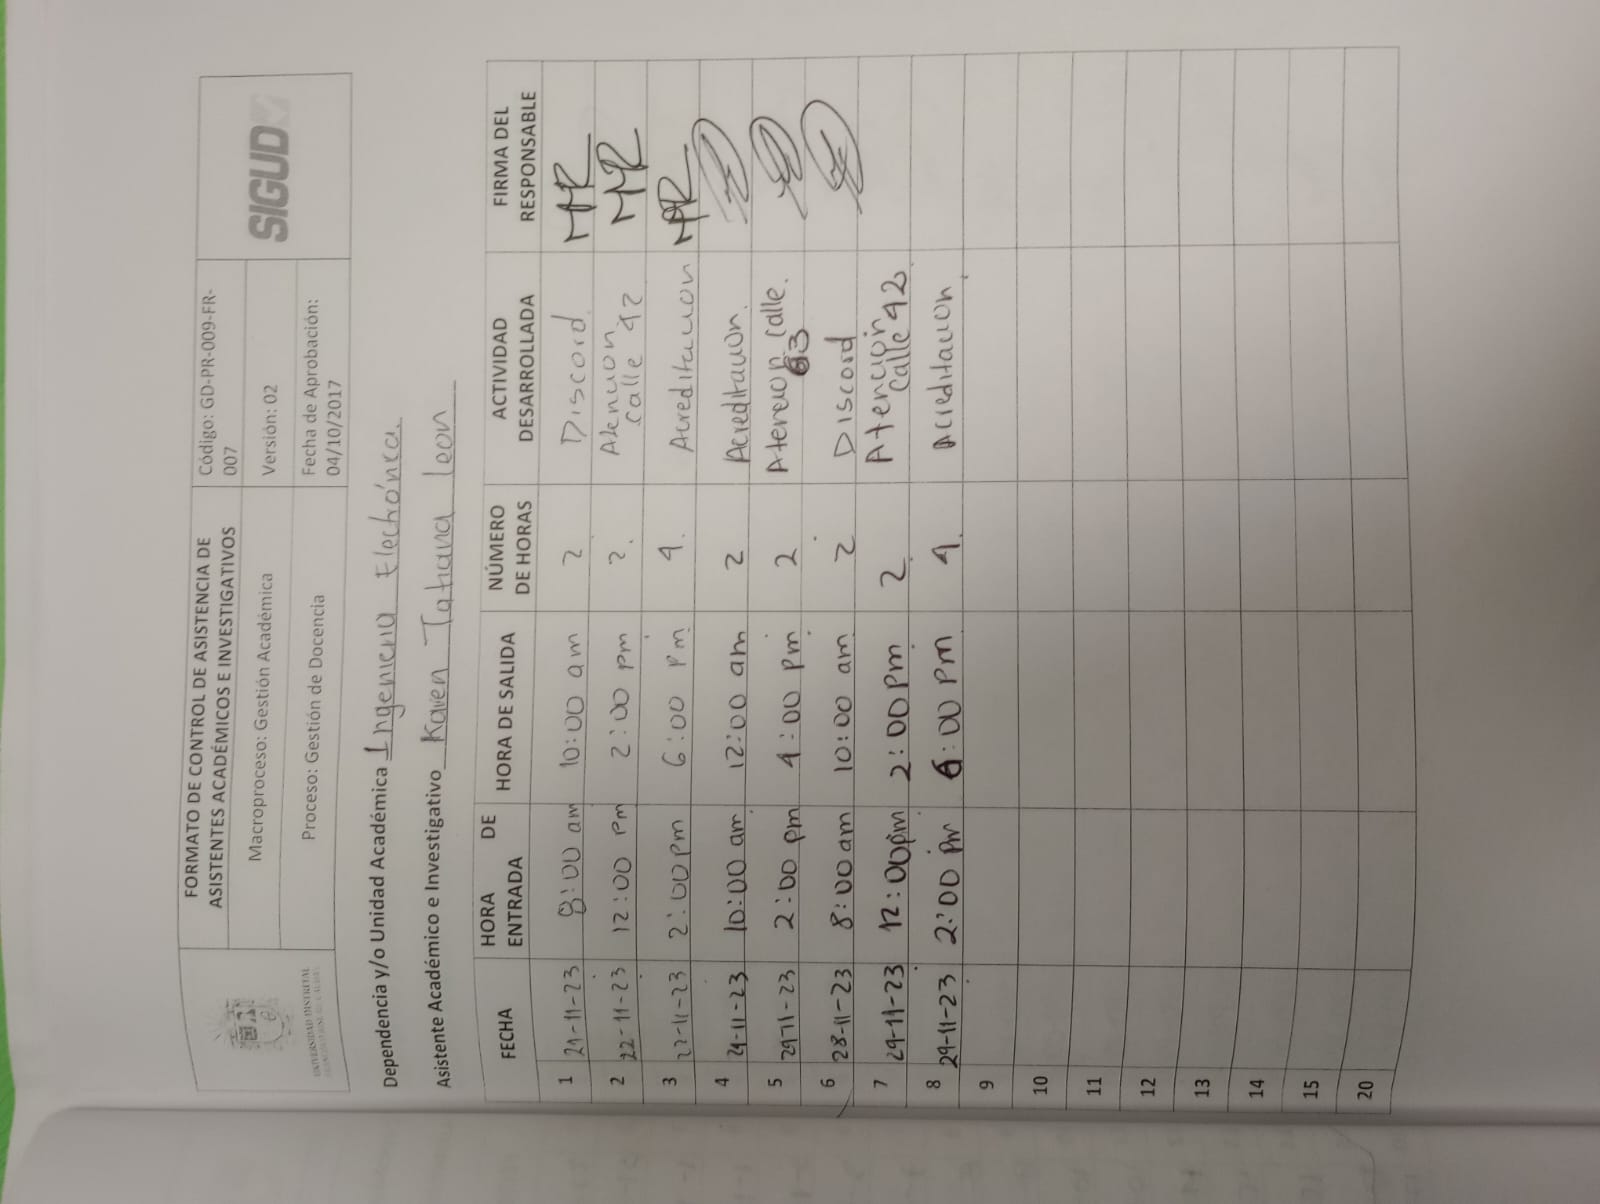 UNIVERSIDAD DISTRITAL
FORMATO DE CONTROL DE ASISTENCIA DE
ASISTENTES ACADÉMICOS E INVESTIGATIVOS
Macroproceso: Gestión Académica
Proceso: Gestión de Docencia
Código: GD-PR-009-FR-
007
Versión: 02
Fecha de Aprobación:
04/10/2017
SIGUD
Dependencia y/o Unidad Académica Ingenieria Electrónica.
Asistente Académico e Investigativo Karen Tatiana leon
FECHA HORA DE ENTRADA HORA DE SALIDA NÚMERO DE HORAS ACTIVIDAD DESARROLLADA FIRMA DEL RESPONSABLE
1 21-11-23 8:00 am 10:00 am 2 Discord. MR
2 22-11-23 12:00 pm 2:00 pm 2. Atencion calle 42 MR
3 22-11-23 2:00 pm 6:00 pm 4. Acreditacion MR
4 24-11-23 10:00 am 12:00 am 2 Acreditacion.
5 24-11-23 2:00 pm 4:00 pm 2 Atencion calle. 63
6 28-11-23 8:00 am 10:00 am 2 Discord
7 29-11-23 12:00 pm 2:00 pm 2 Atención calle 42
8 29-11-23 2:00 pm 6:00 pm 4. Acreditacion.
9
10
11
12
13
14
15
20